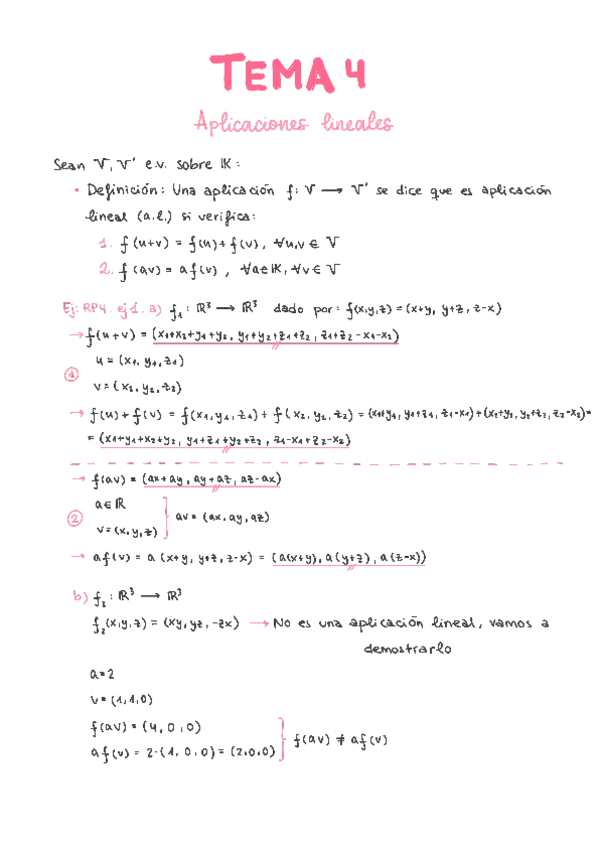 TEMA 4
Aplicaciones lineales
Sean V, V' e.v. sobre IK:
• Definición: Una aplicación f: V → V' se dice que es aplicación
lineal (a.l.) si verifica:
1. f(u+v) = f(u)+f(v), ∀u,v ∈ V
2. f(av) = af(v), ∀a∈IK, ∀v∈V
Ej: RP4. ej1. a) f₁: ℝ³ → ℝ³ dado por: f(x,y,z) = (x+y, y+z, z-x)
→ f(u+v) = (x₁+x₂+y₁+y₂, y₁+y₂+z₁+z₂, z₁+z₂-x₁-x₂)
u = (x₁, y₁, z₁)
①
v = (x₂, y₂, z₂)
→ f(u)+f(v) = f(x₁,y₁,z₁) + f(x₂,y₂,z₂) = (x₁+y₁, y₁+z₁, z₁-x₁)+(x₂+y₂, y₂+z₂, z₂-x₂)=
= (x₁+y₁+x₂+y₂, y₁+z₁+y₂+z₂, z₁-x₁+z₂-x₂)
→ f(av) = (ax+ay, ay+az, az-ax)
a∈ℝ
② v=(x,y,z) } av = (ax, ay, az)
→ af(v) = a(x+y, y+z, z-x) = (a(x+y), a(y+z), a(z-x))
b) f₂: ℝ³ → ℝ³
f₂(x,y,z) = (xy, yz, -zx) → No es una aplicación lineal, vamos a
demostrarlo
a=2
v=(1,1,0)
f(av) = (4,0,0)
af(v) = 2·(1,0,0) = (2,0,0) } f(av) ≠ af(v)